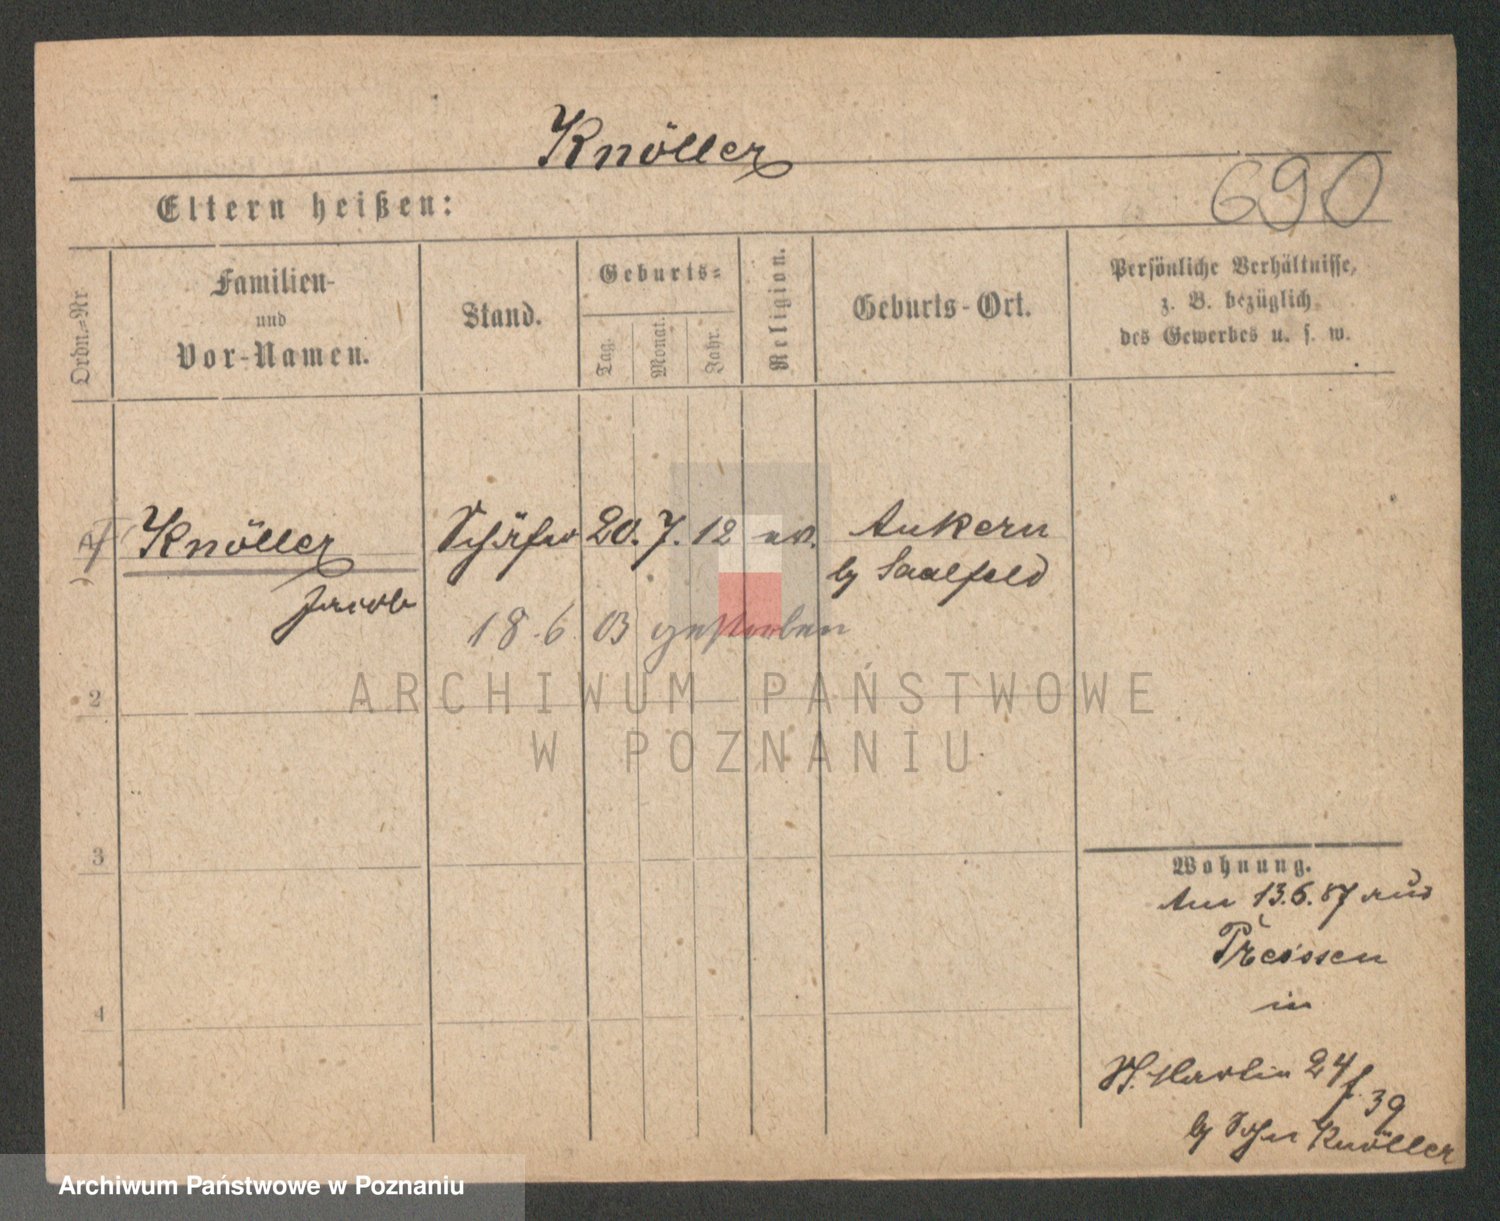 Knöller
690
Eltern heißen:
Ordn.-Nr.
Familien-
und
Vor-Namen.
Stand.
Geburts-
Tag.
Monat.
Jahr.
Religion.
Geburts-Ort.
Persönliche Verhältnisse,
z. B. bezüglich
des Gewerbes u. s. w.
Knöller Schäfer 20. 7. 12 ev. Ankern
Jacob
b/ Saalfeld
18.6 03 gestorben
ARCHIWUM PAŃSTWOWE
W POZNANIU
2
3
4
Wohnung.
Am 13.6.87 aus
Preussen
in
St. Martin 24
f. 39
b/ Sohn Knöller
Archiwum Państwowe w Poznaniu